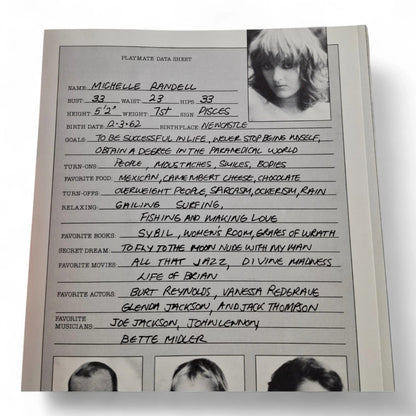 PLAYMATE DATA SHEET
NAME: MICHELLE RANDELL
BUST: 33 WAIST: 23 HIPS: 33
HEIGHT: 5'2" WEIGHT: 7st SIGN PISCES
BIRTH DATE 12-3-62 BIRTHPLACE NEWCASTLE
GOALS: TO BE SUCCESSFUL IN LIFE, NEVER STOP BEING MYSELF,
OBTAIN A DEGREE IN THE PARAMEDICAL WORLD
TURN-ONS: PEOPLE, MOUSTACHES, SMILES, BODIES
FAVORITE FOOD: MEXICAN, CAMEMBERT CHEESE, CHOCOLATE
TURN-OFFS: OVERWEIGHT PEOPLE, SARCASM, OCKERISM, RAIN
RELAXING: SAILING SURFING,
FISHING AND MAKING LOVE
FAVORITE BOOKS: SYBIL, WOMEN'S ROOM, GRAPES OF WRATH
SECRET DREAM: TO FLY TO THE MOON NUDE WITH MY MAN
FAVORITE MOVIES: ALL THAT JAZZ, DIVINE MADNESS
LIFE OF BRIAN
FAVORITE ACTORS: BURT REYNOLDS, VANESSA REDGRAVE
GLENDA JACKSON, AND JACK THOMPSON
FAVORITE
MUSICIANS: JOE JACKSON, JOHN LENNON,
BETTE MIDLER